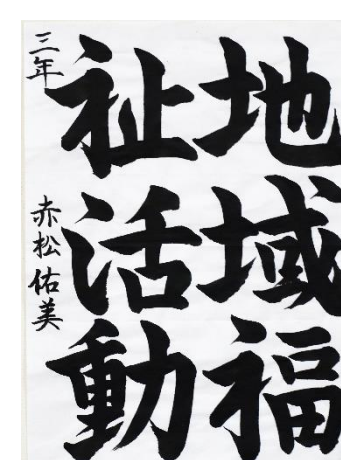 地域福
祉活動
三年 赤松佑美